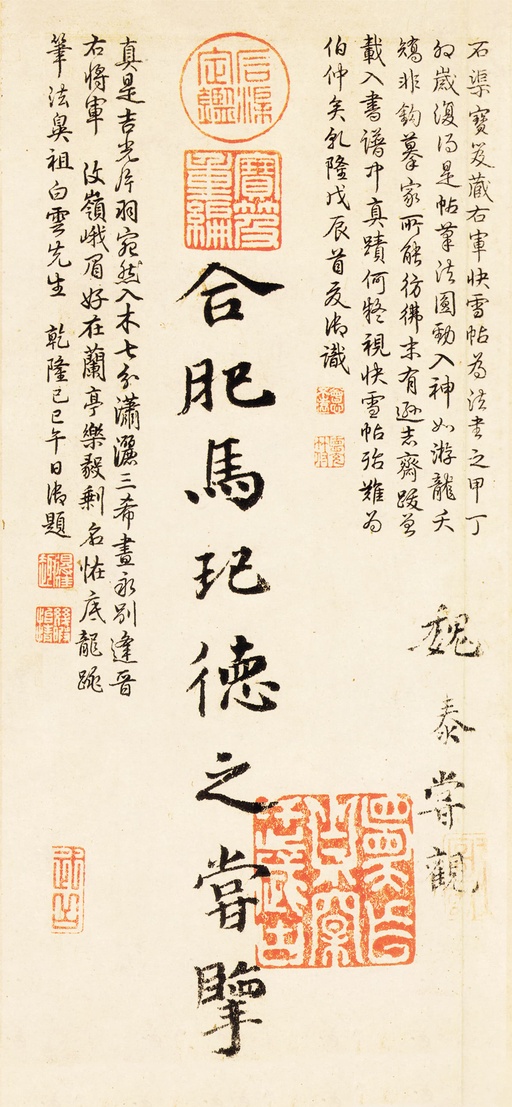 石渠寶笈藏右軍快雪帖為法書之甲丁
卯歲復得是帖筆法圓勁入神如游龍夭
矯非鉤摹家所能彷彿末有遜志齋跋曾
載入書譜中真蹟何疑視快雪帖殆難為
伯仲矣乾隆戊辰首夏御識
魏泰嘗觀
石渠定鑑
寶笈重編
合肥馬玘德之嘗擥
真是吉光片羽宛然入木七分瀟灑三希晝永別逢晉
右將軍 汶嶺峨眉好在蘭亭樂毅剩名恠底龍跳
筆法鼻祖白雲先生 乾隆己巳午日御題